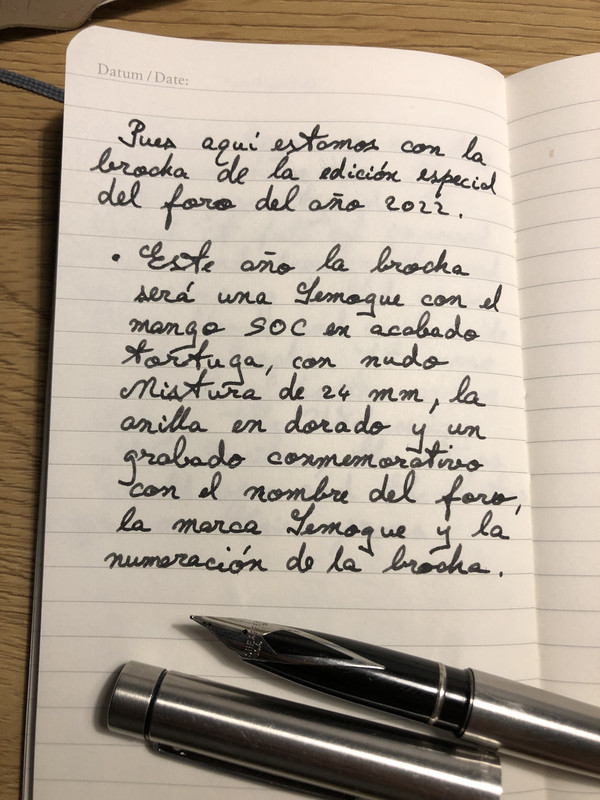 Datum / Date:
Pues aquí estamos con la
brocha de la edición especial
del foro del año 2022.
• Este año la brocha
será una Semogue con el
mango SOC en acabado
tortuga, con nudo
Mistura de 24 mm, la
anilla en dorado y un
grabado conmemorativo
con el nombre del foro,
la marca Semogue y la
numeración de la brocha.